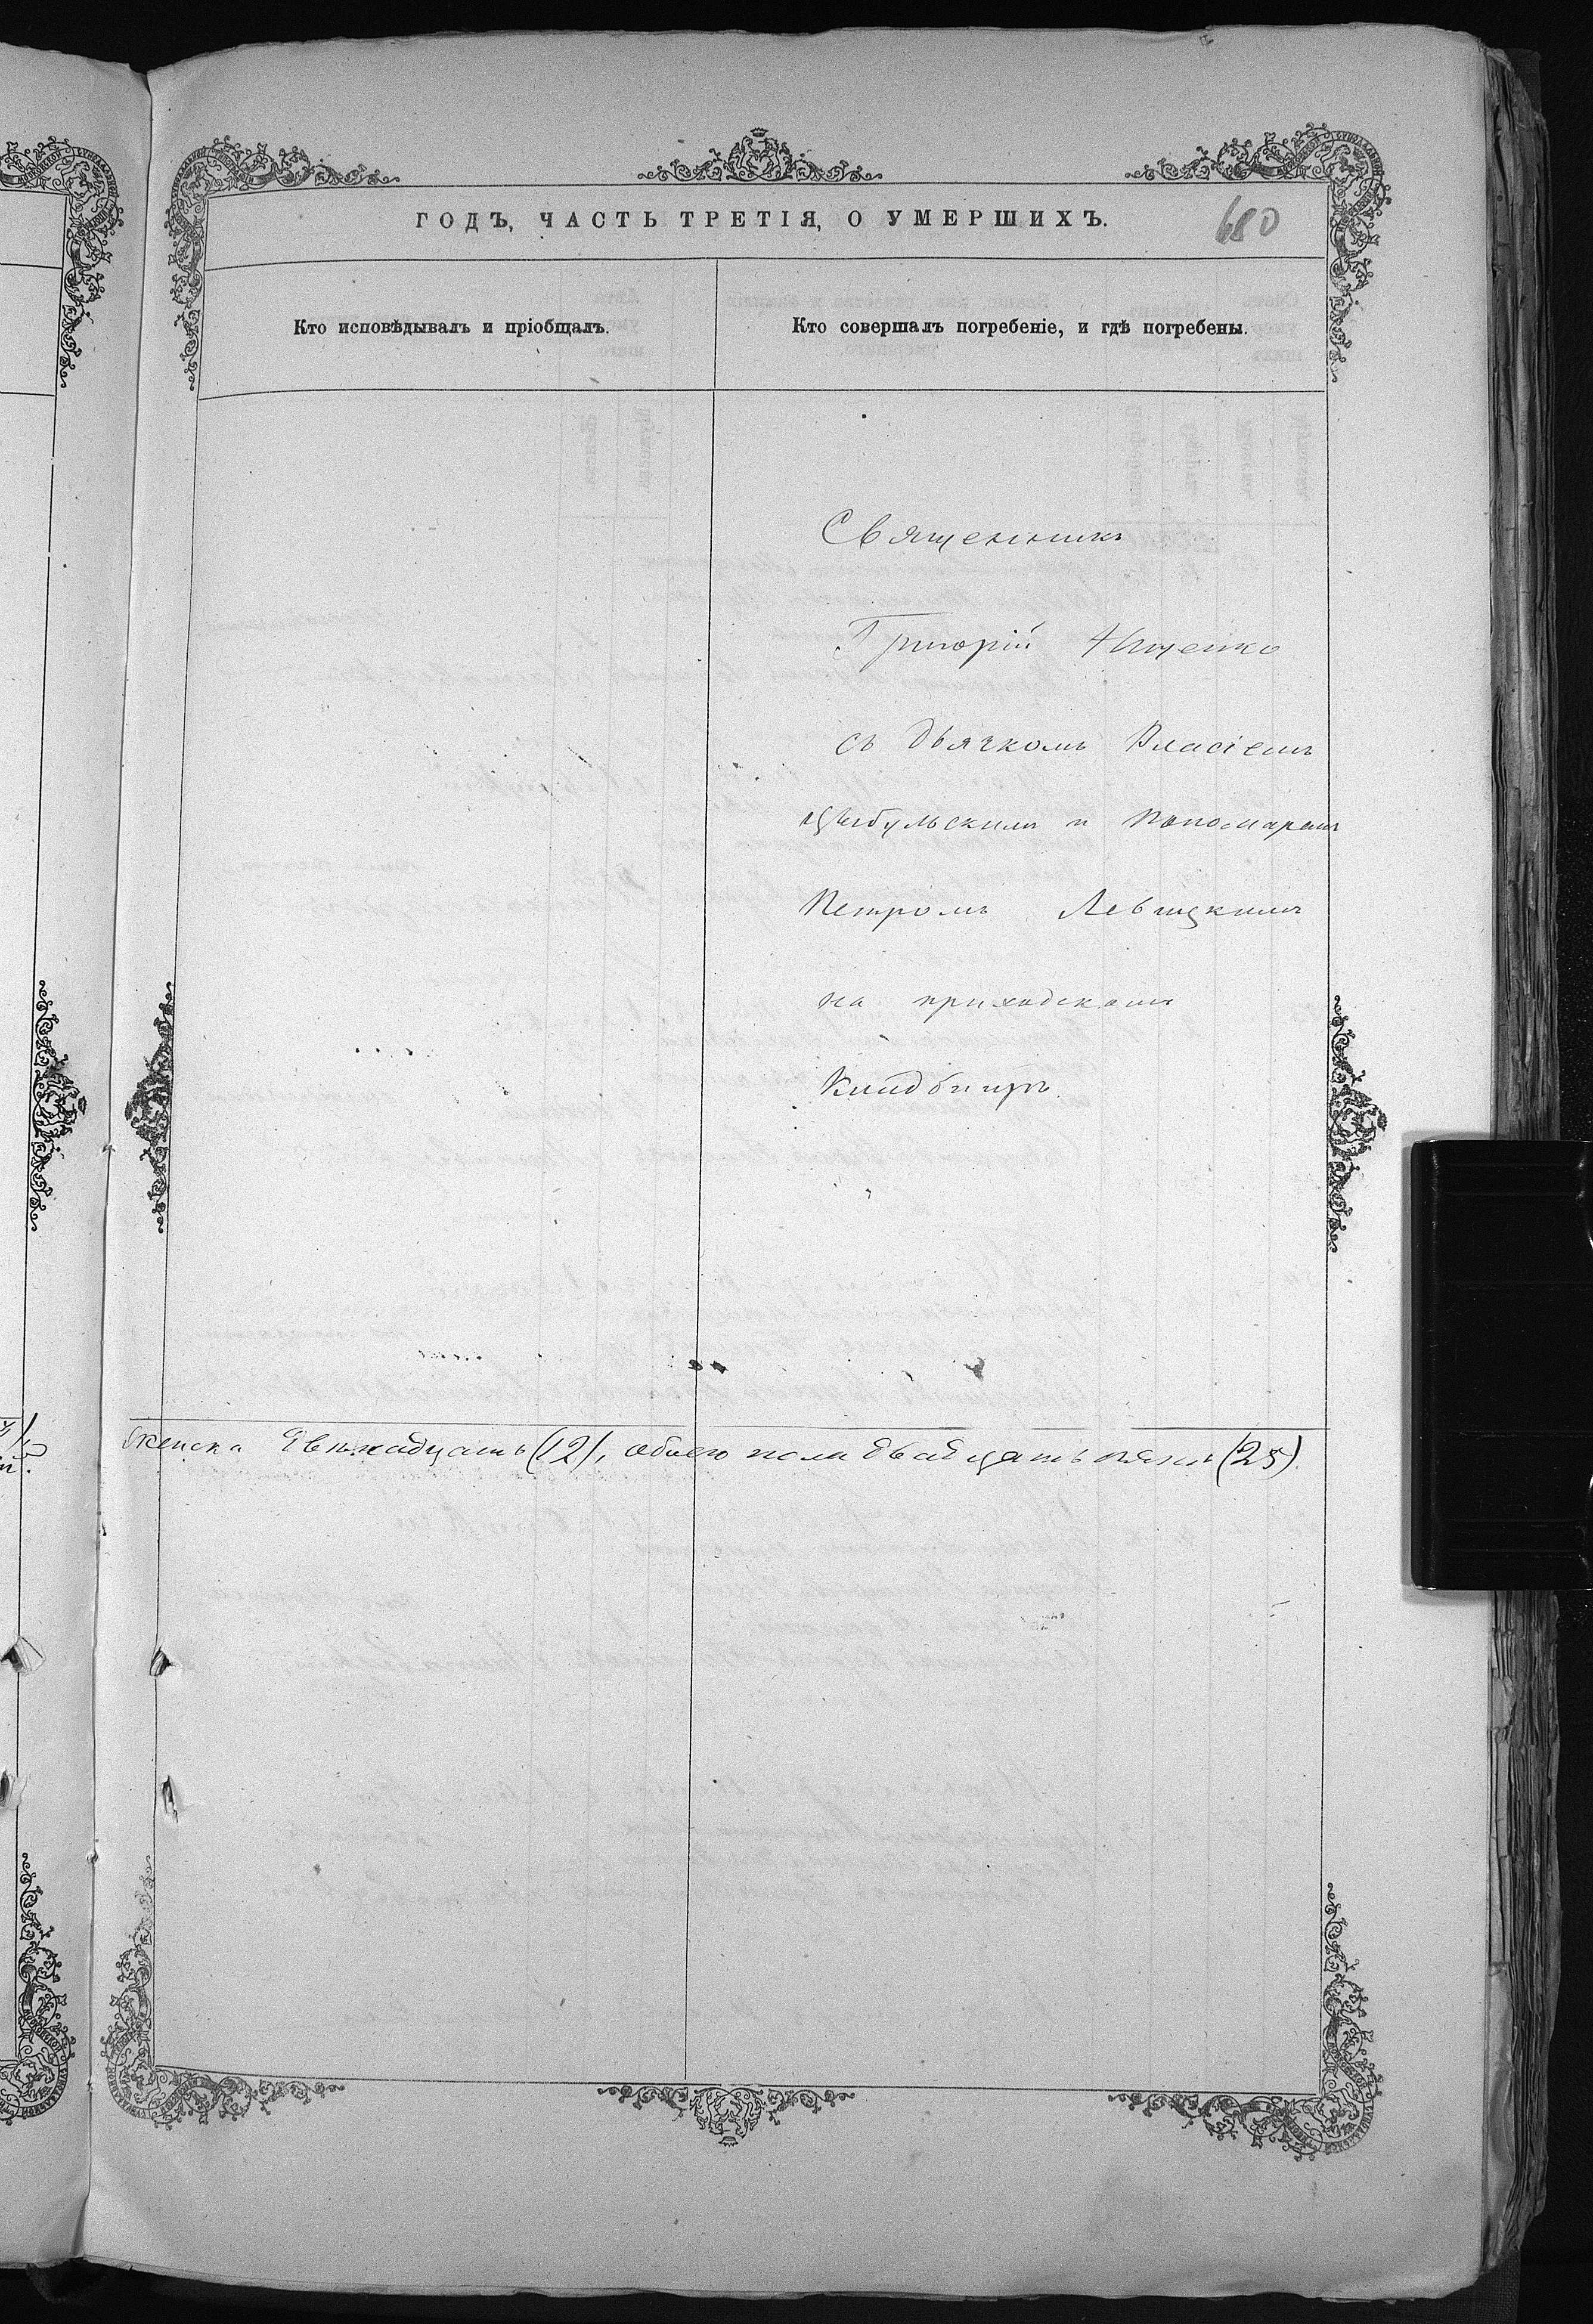 ГОДЪ, ЧАСТЬ ТРЕТІЯ, О УМЕРШИХЪ.
680
Кто исповѣдывалъ и пріобщалъ.
Кто совершалъ погребеніе, и гдѣ погребены.
Священникъ
Григорій Ищенко
съ дьячкомъ Власіемъ
Цыбульскимъ и Пономаремъ
Петромъ Левицкимъ
на приходскомъ
Кладбищѣ.
женска двѣнадцать (12), обоего пола двадцать пять (25).